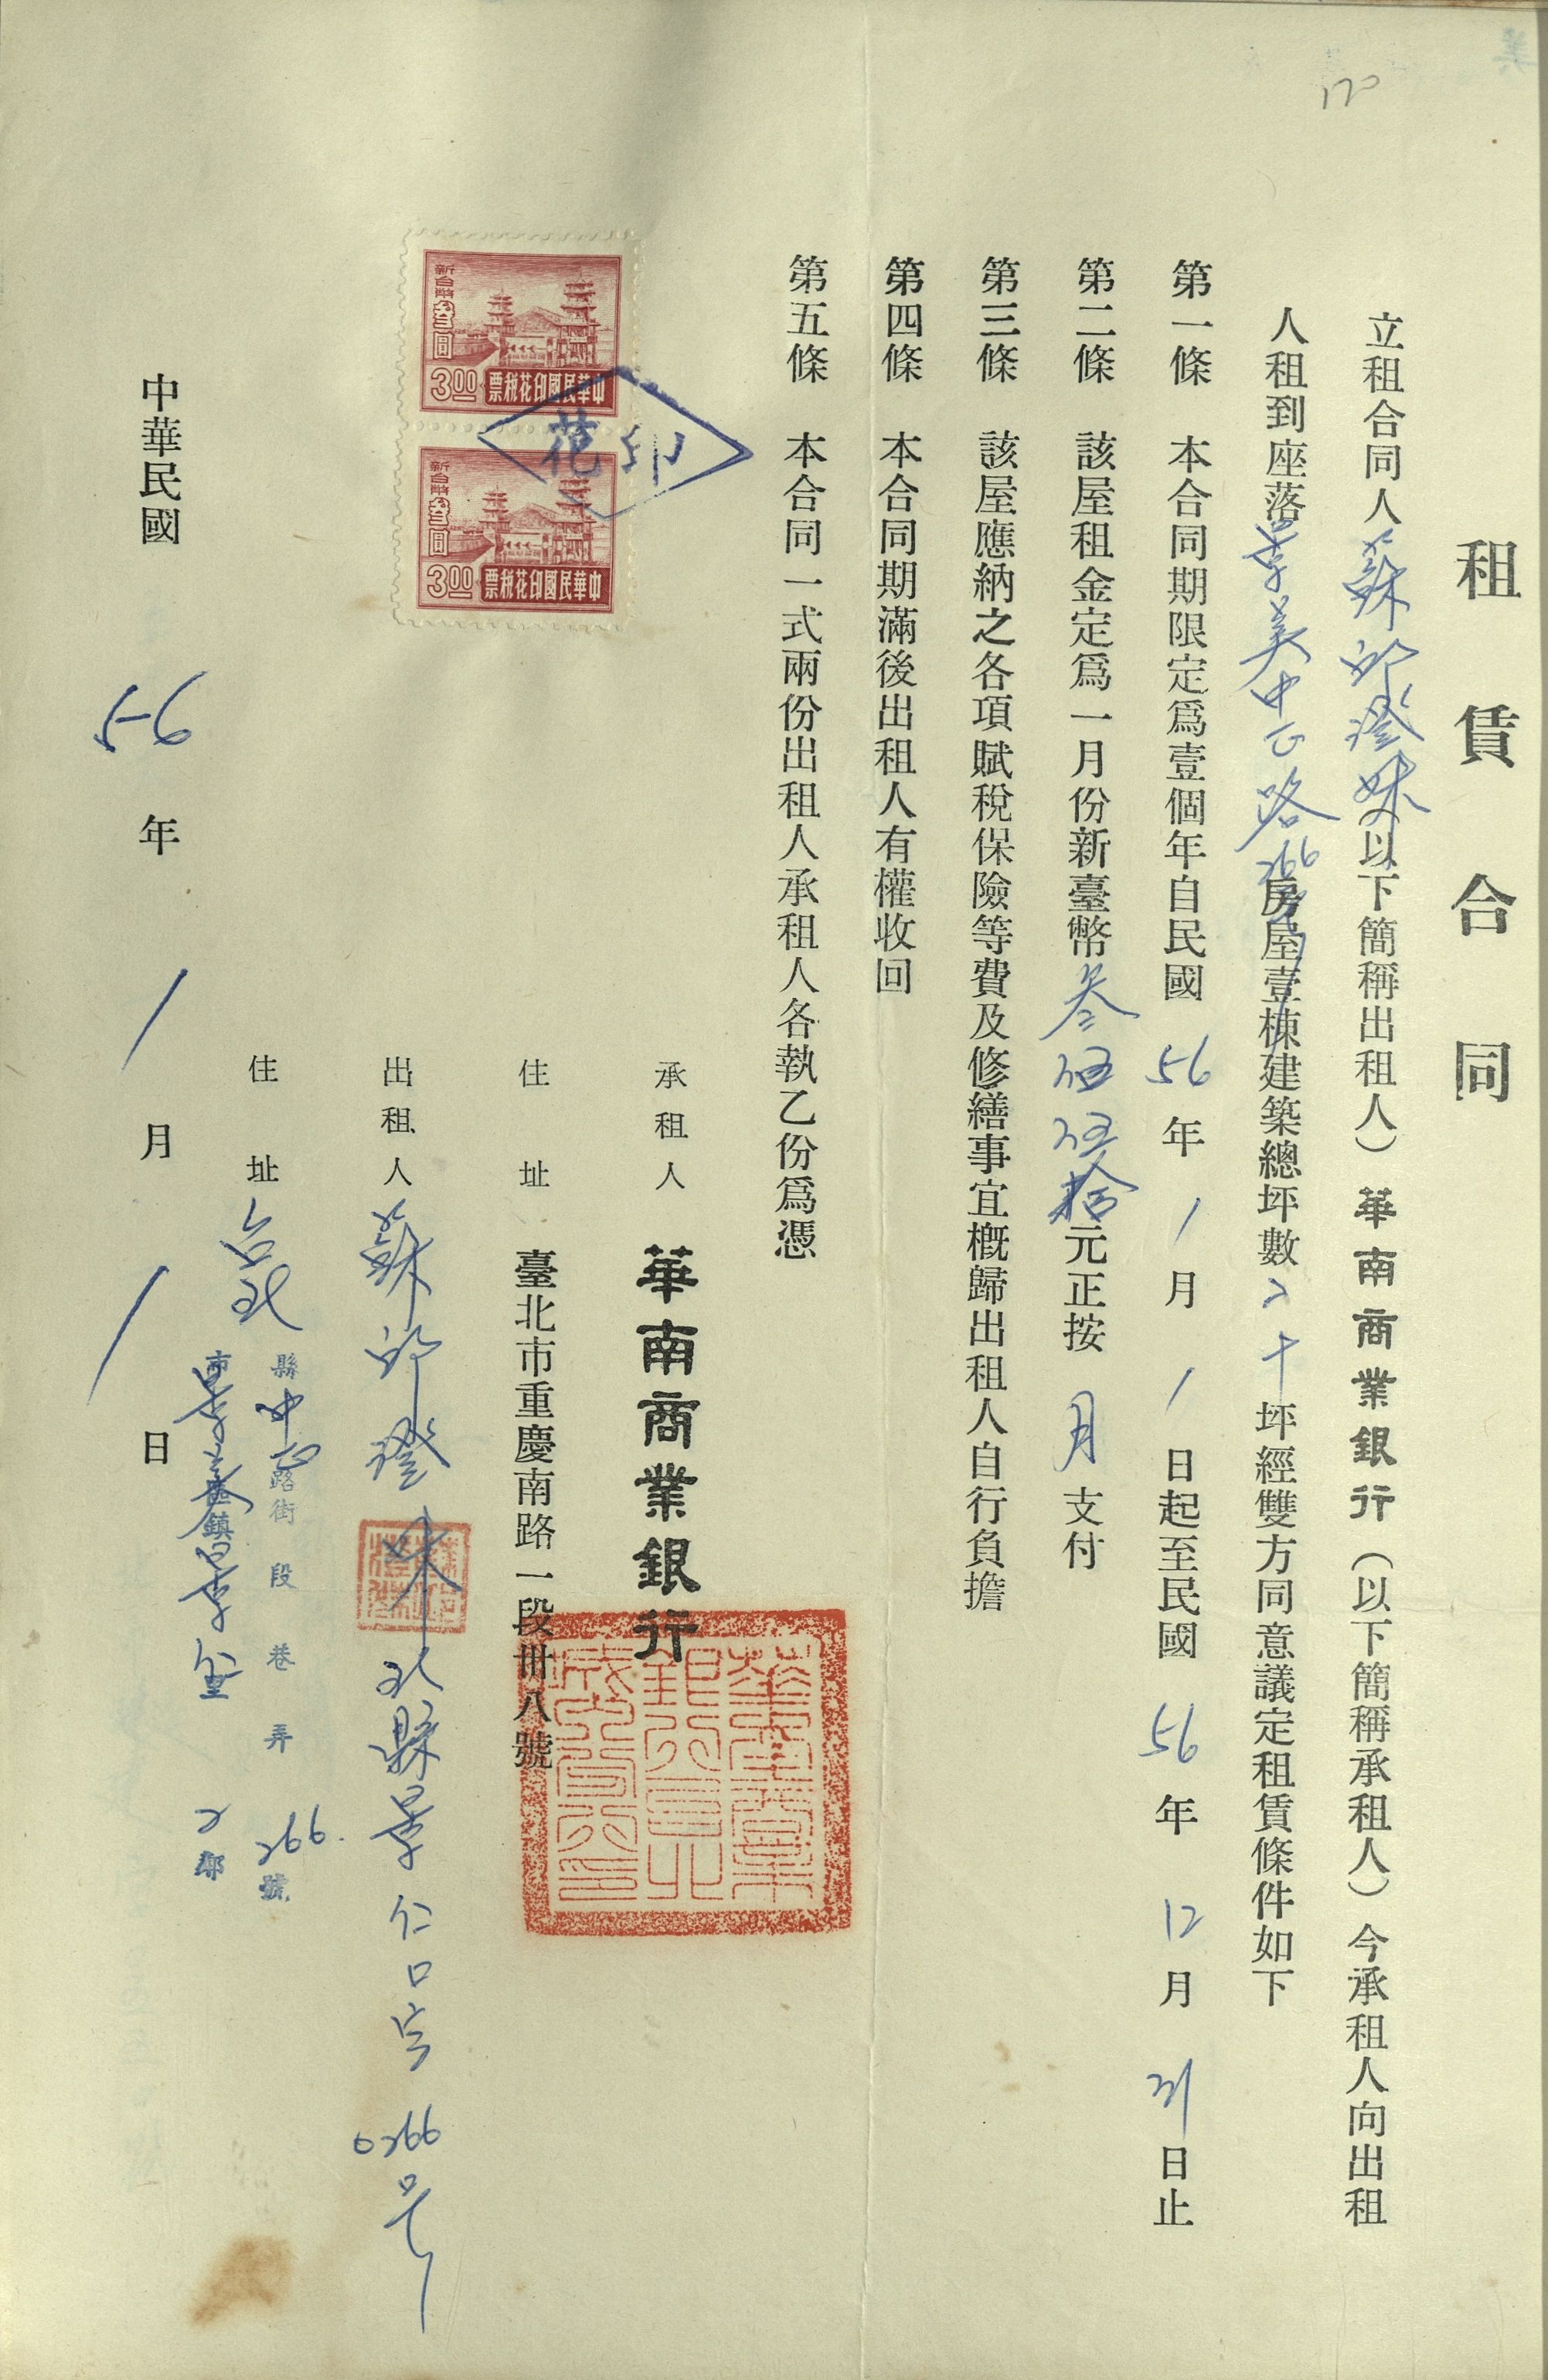 170
租賃合同
立租合同人蘇邱澄妹(以下簡稱出租人)華南商業銀行(以下簡稱承租人)今承租人向出租
人租到座落景美中正路266號房屋壹棟建築總坪數二十坪經雙方同意議定租賃條件如下
第一條 本合同期限定為壹個年自民國56年1月1日起至民國56年12月31日止
第二條 該屋租金定為一月份新臺幣叁佰伍拾元正按月支付
第三條 該屋應納之各項賦稅保險等費及修繕事宜概歸出租人自行負擔
第四條 本合同期滿後出租人有權收回
第五條 本合同一式兩份出租人承租人各執乙份為憑
印花
中華民國印花稅票
新台幣叁圓
3.00
中華民國印花稅票
新台幣叁圓
3.00
承租人 華南商業銀行
住址 臺北市重慶南路一段卅八號
出租人 蘇邱澄妹 北縣景仁口字0266号
住址 台北縣市景美區鎮景里2鄰
中正路街 段 巷 弄 266號
中華民國56年1月1日